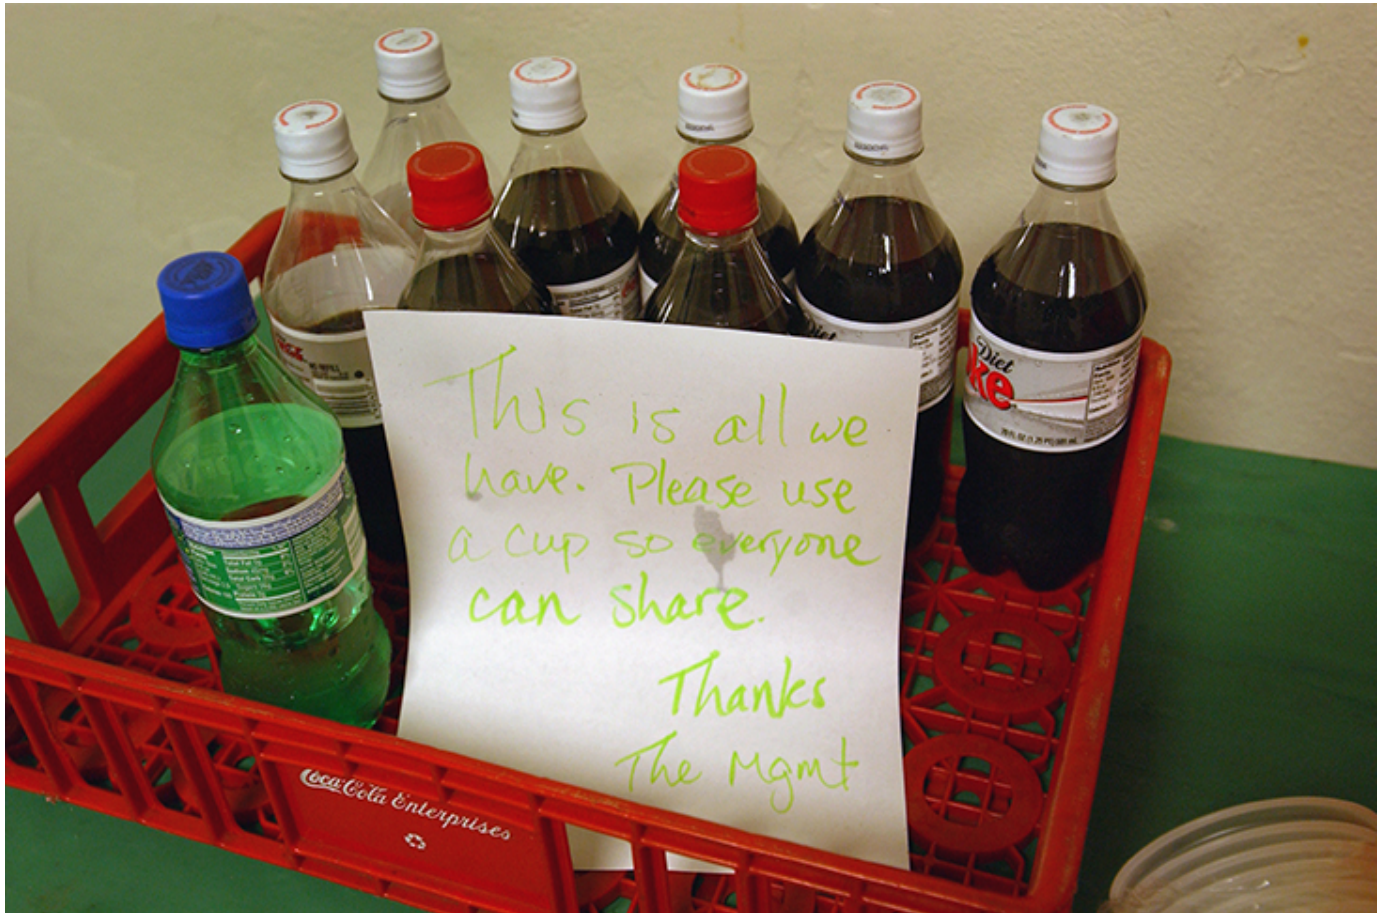 This is all we
have. Please use
a cup so everyone
can share.
Thanks
The Mgmt
Diet
Diet
ke
Coca-Cola Enterprises